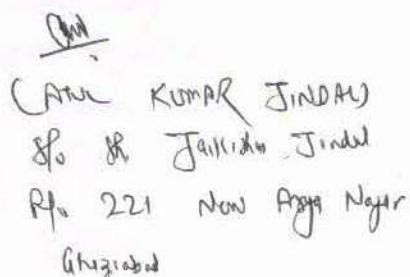 (ATUL KUMAR JINDAL)
S/o Sh Jaikishan Jindal
R/o 221 New Arya Nagar
Ghaziabad